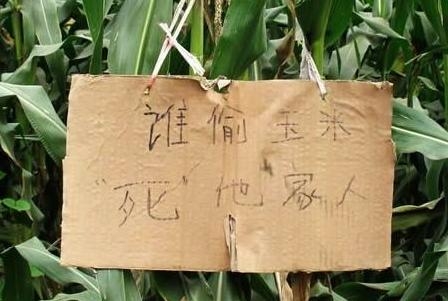 谁偷玉米
"死"他家人